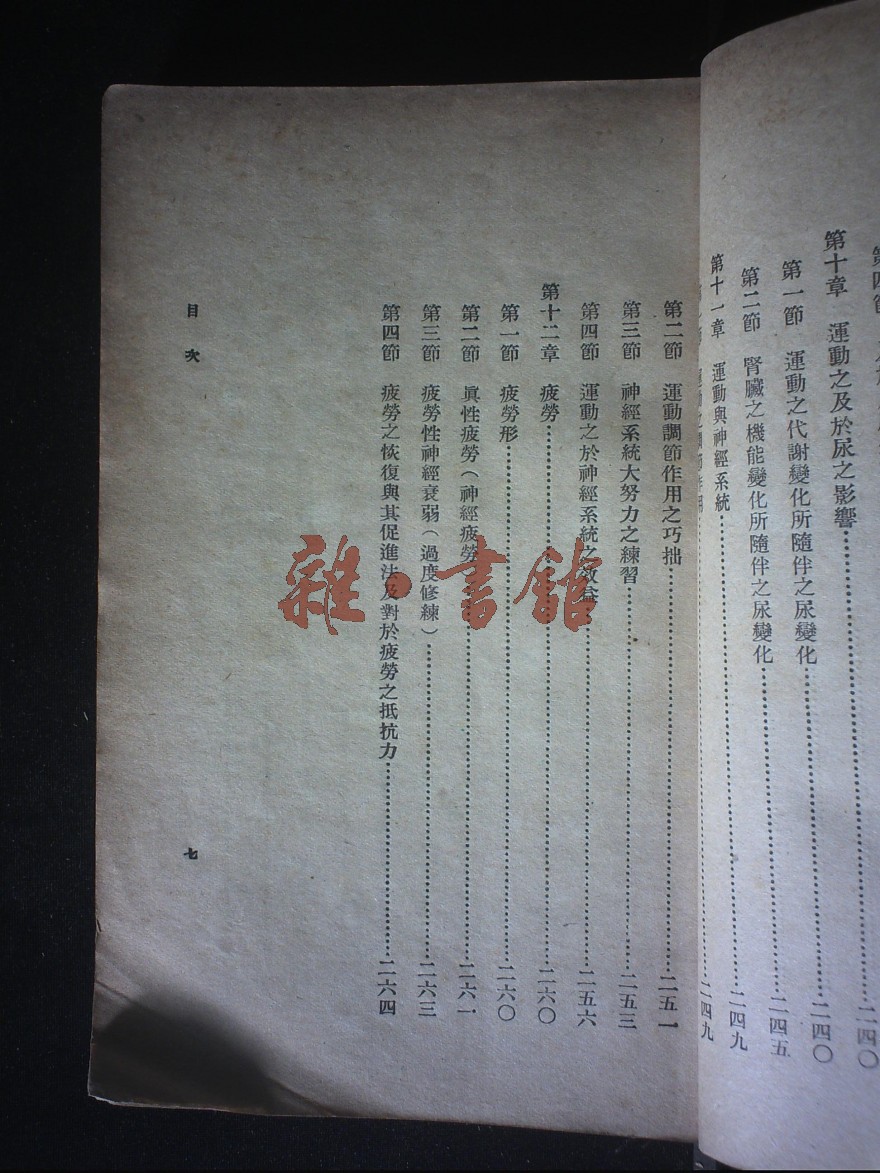 第四節
第十章 運動之及於尿之影響……二四〇
第一節 運動之代謝變化所隨伴之尿變化……二四〇
第二節 腎臟之機能變化所隨伴之尿變化……二四五
第十一章 運動與神經系統……二四九
運動之調節作用……二四九
第二節 運動調節作用之巧拙……二五一
第三節 神經系統大努力之練習……二五三
第四節 運動之於神經系統之效益……二五六
第十二章 疲勞……二六〇
第一節 疲勞形……二六〇
第二節 眞性疲勞(神經疲勞)……二六一
第三節 疲勞性神經衰弱(過度修練)……二六三
第四節 疲勞之恢復與其促進法及對於疲勞之抵抗力……二六四
目次
七
雜·書館